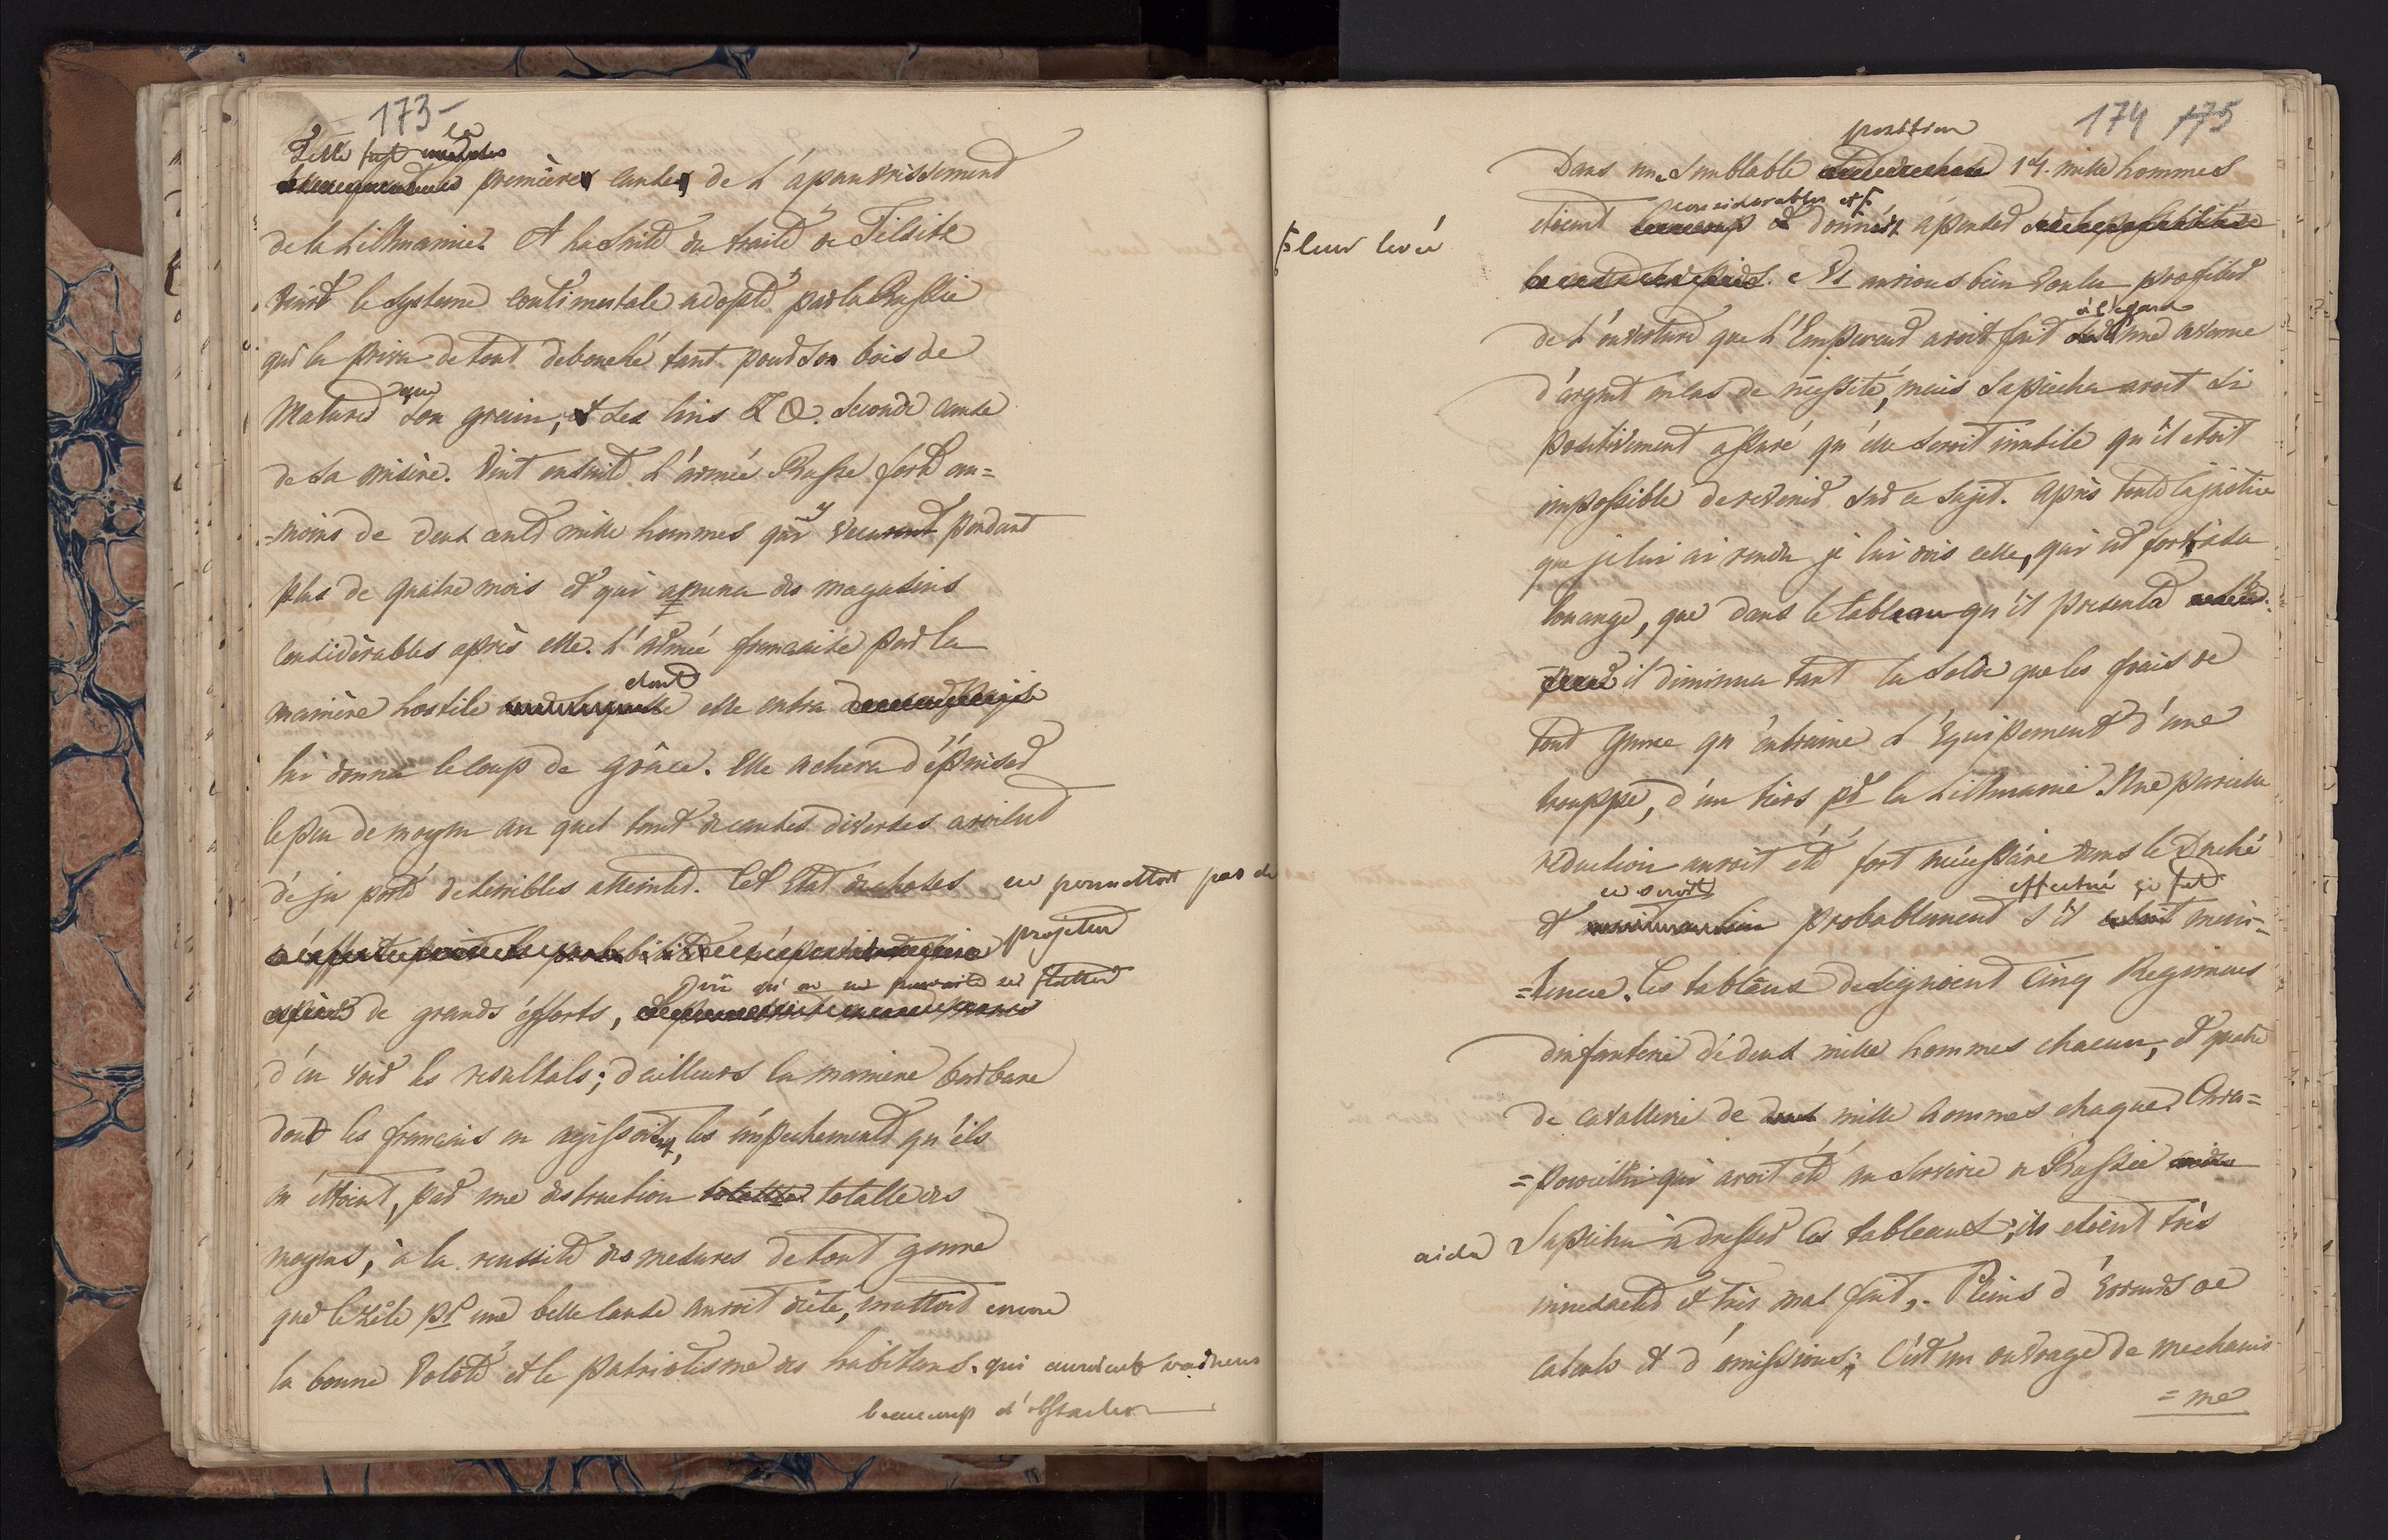 173-
Telle fut la
première cause, de l'apauvrissement
de la Lithuanie. A la suite du traité de Tilsitt
vint le systeme continentale adopté par la Russie
qui la priva de tout debouché tant pour son bois de
mature que son grain, et ses lins &c. Seconde cause
de sa misère. Vint ensuite l'armée Russe forte au=
=moins de deux cents mille hommes qui y vecurent pendant
plus de quatre mois et qui amena des magasins
considèrables après elle. L'armée francaise par la
manière hostile dont elle entra
lui donna le coup de grâce. Elle acheva d'épuiser
le peu de moyen au quel tant de causes diverses avoient
déja porté de terribles atteintes. Cet Etat de choses ne permettoit pas de
projetter
de grands éfforts, ni on ne pouvoit se flatter
d'en voir les resultats; d'ailleurs la manière barbare
dont les francais en agissoient, les empechements qu'ils
mettoient, par une destruction totalle des
moyens, à la reussite des mesures de tout genre
que le zèle pr une belle cause auroit dicté, mattoit encore
la bonne volonté et le patriotisme des habitans. qui auroient vaincus
beaucoup d'obstacles
174 175
position
Dans une semblable 14. mille hommes
considerables et
leur levée
etoient donnèrt à penser
Ns aurions bien voulu profiter
à l'égard
de l'ouverture que l'Empereur avoit fait d'une avance
d'argent en cas de nécessité, mais Sapieha avoit si
positivement assuré qu'elle seroit inutile qu'il etoit
impossible de revenir sur ce sujet. Après toute la justice
que je lui ai rendu je lui dois celle, qui est fort à sa
louange, que dans le tableau qu'il presenta
il diminua tant la solde que les frais de
tout genre qu'entraine l'Equipement d'une
trouppe, d'un tiers pr la Lithuanie. Une pareille
rèduction auroit été fort nécessaire dans le Duché
ce seroit effectué si fut
et probablement s'il minis=
=tence. Ces tableaus designoient Cinq Regimens
d'infanterie de deux mille hommes chacun, et quatre
de cavallerie de mille hommes chaque. Chra=
=powicki qui avoit été au service de Russie
aida Sapieha à dresser ces tableaux; ils etoient très
innexactes et très mal fait, Pleins d'Erreurs de
calculs et d'omissions; C'est un ouvrage de mechanis
=me